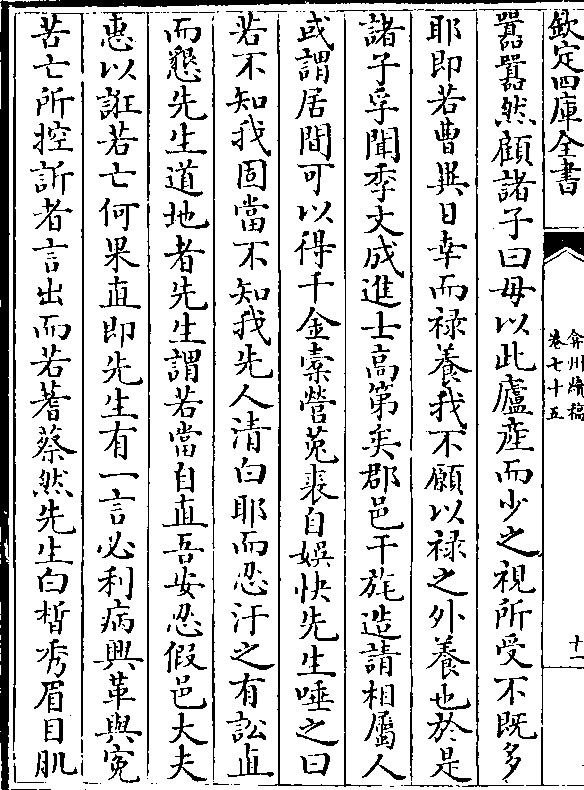 欽定四庫全書
弇州續稿
卷七十五
十一
囂囂然顧諸子曰毋以此廬産而少之視所受不既多
耶即若曹異日幸而禄養我不願以禄之外養也於是
諸子孚聞季文成進士高第矣郡邑干旄造請相屬人
或謂居間可以得千金槖營菟裘自娯快先生唾之曰
若不知我固當不知我先人清白耶而忍汙之有訟直
而懇先生道地者先生謂若當自直吾安忍假邑大夫
惠以誑若亡何果直即先生有一言必利病興革與寃
苦亡所控訴者言出而若蓍蔡然先生白晳秀眉目肌